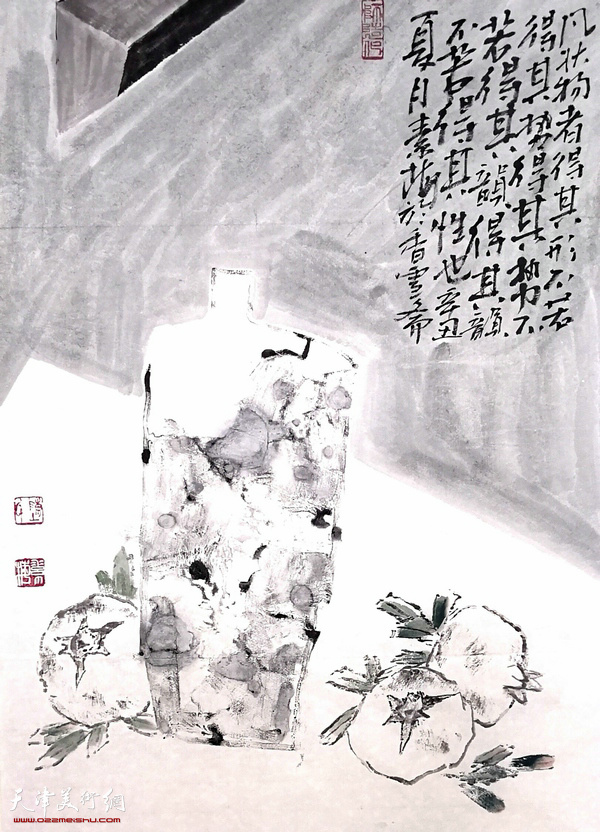 凡状物者得其形不若
得其势得其势不
若得其韻得其韻
不若得其性也辛丑
夏月素梅於香雪斋
天津美術網
www.022meishu.com